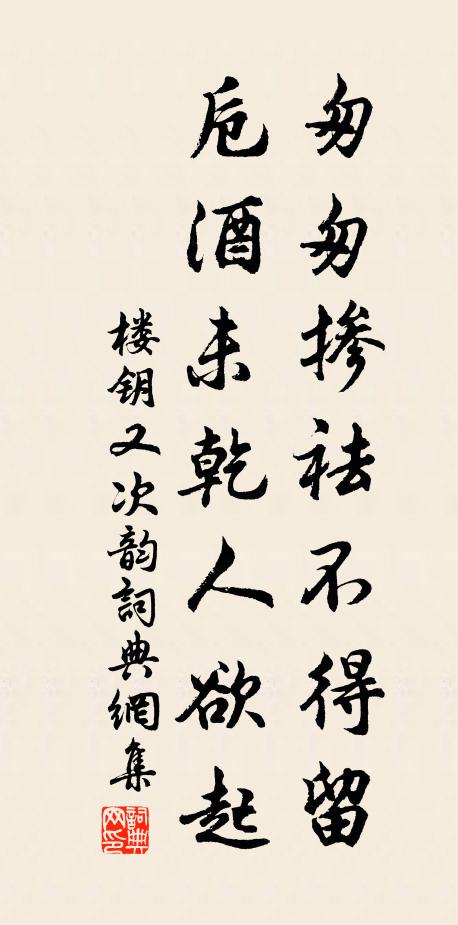 匆匆掺袪不得留
卮酒未乾人欲起
楼钥又次韵詞典網集
詞典网印